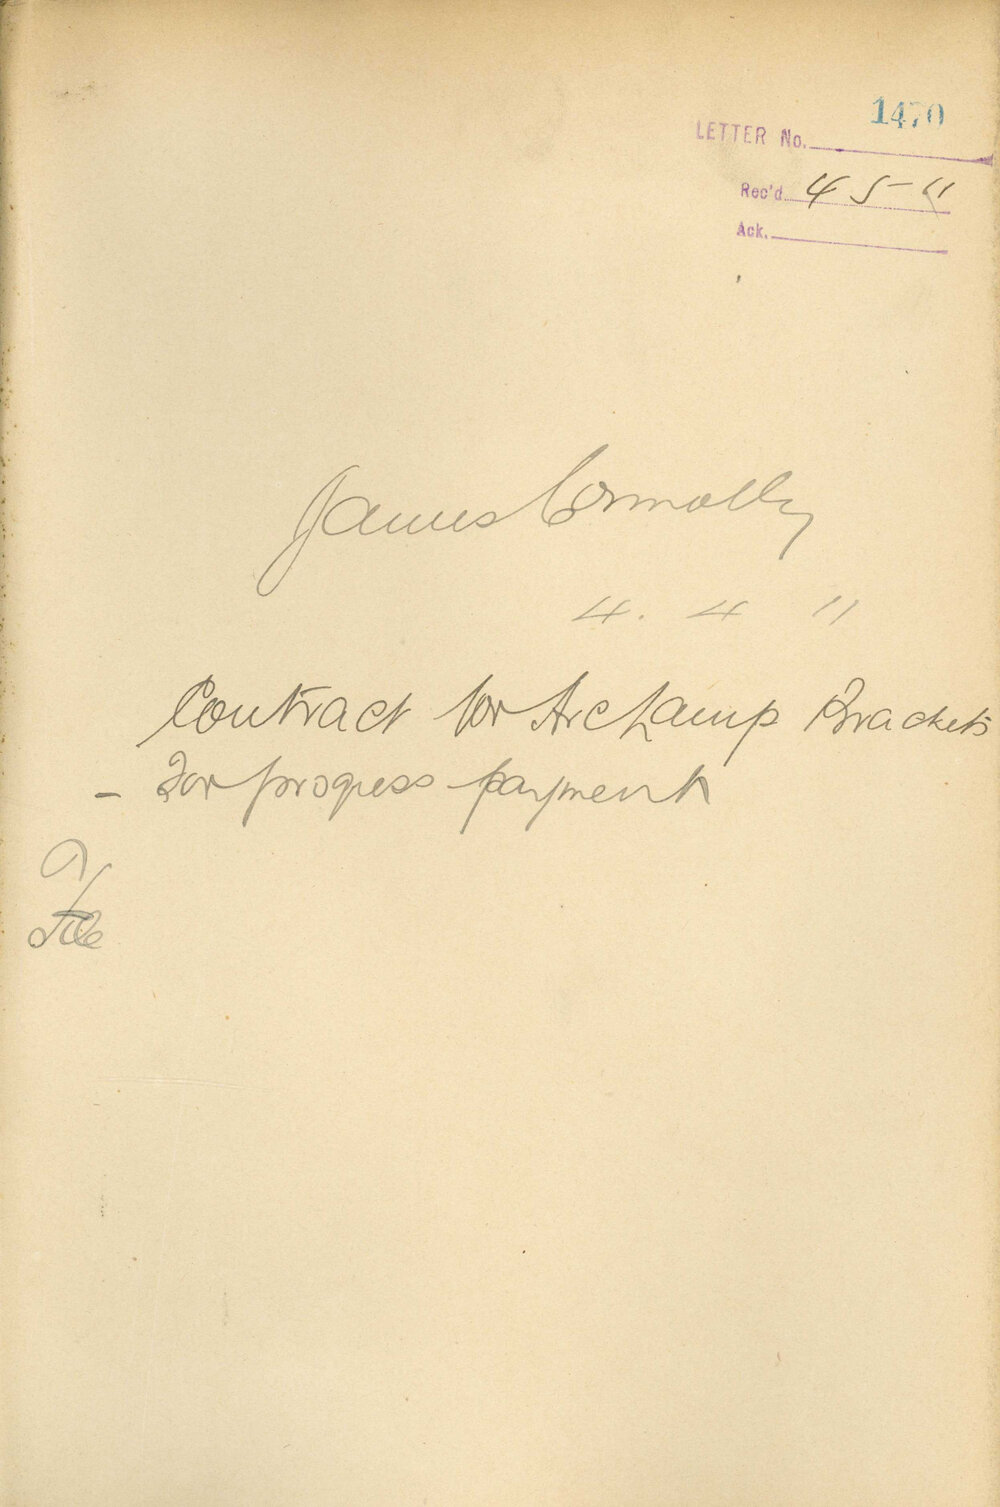 1470
LETTER No.
Rec'd. 4 5 - 11
Ack.
James Connolly
4. 4 11
Contract for Arc Lamp Brackets
- For progress payment
File